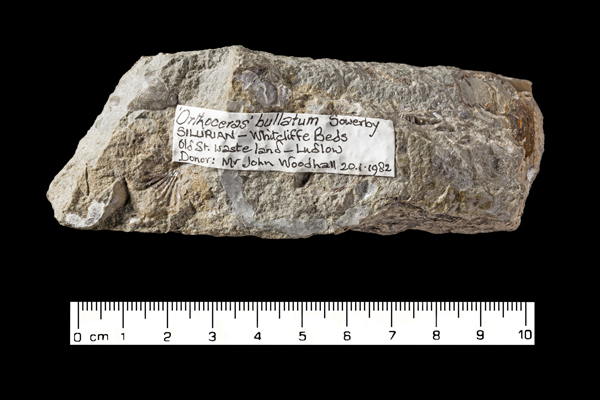 'Orthoceras' bullatum Sowerby
SILURIAN – Whitcliffe Beds
Old St. waste land – Ludlow
Donor: Mr John Woodhall 20.1.1982
0 cm 1 2 3 4 5 6 7 8 9 10